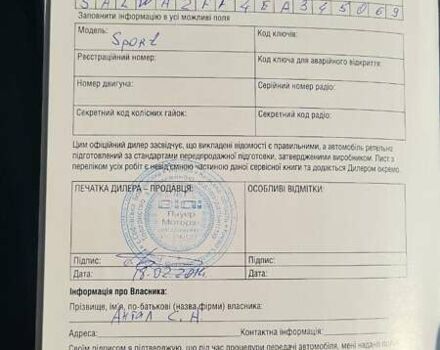 S A L W A 2 F F 4 E A 3 4 5 0 6 9
Заповнити інформацію в усі можливі поля
Модель: Sport
Код ключів:
Реєстраційний номер:
Код ключа для аварійного відкриття:
Номер двигуна:
Серійний номер радіо:
Секретний код колісних гайок:
Секретний код радіо:
Цим офіційний дилер засвідчує, що викладені відомості є правильними, а автомобіль ретельно
підготовлений за стандартами передпродажної підготовки, затвердженими виробником. Лист з
переліком усіх робіт є невід'ємною частиною даної сервісної книги та додається Дилером окремо.
ПЕЧАТКА ДИЛЕРА – ПРОДАВЦЯ:
ОСОБЛИВІ ВІДМІТКИ:
Моторз
Підпис:
Підпис:
Дата: 18.02.2014
Дата:
Інформація про Власника:
Прізвище, ім'я, по-батькові (назва фірми) власника:
Антал С. А.
Адреса:
Контактна інформація:
Своїм підписом я підтверджую, що під час процедури передачі автомобіля, мені надано повн